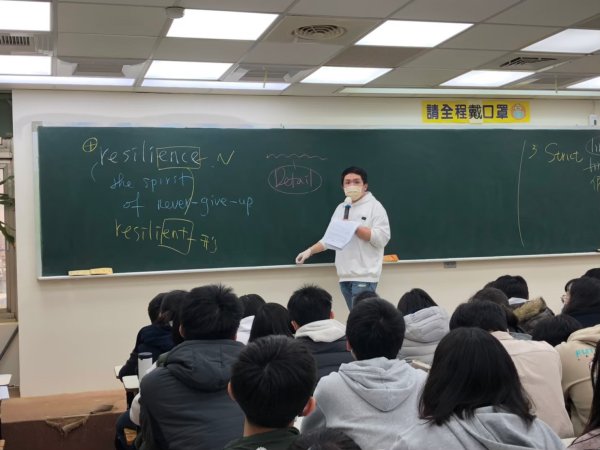 請全程戴口罩
resilience N
the spirit
of never-give-up
resilient
Detail
3 Strict